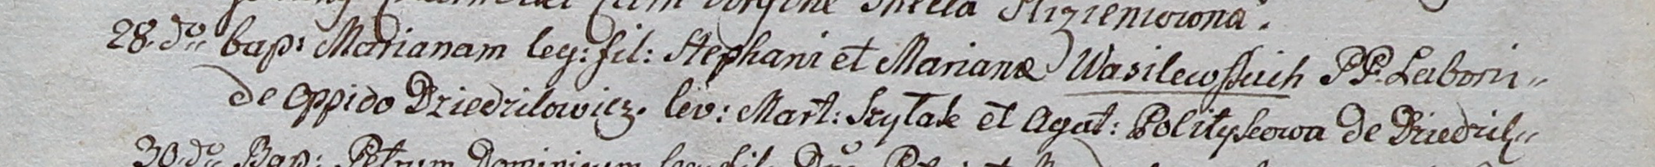 cum virgine Stella Slizieniowona.
28. do bap: Marianam leg: fil: Stephani et Marianæ Wasilewskich PP. Labori-
de oppido Dziedzilowicz. lev: Mart: Szytak et Agat: Politykowa de Dziedzil-
30. do Bap: Petrum Dominicum leg: fil: